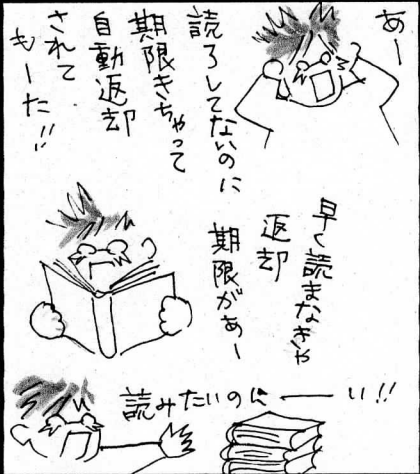 あー
読ろしてないのに
期限きちゃって
自動返却
されて
もーた!!
早く読まなきゃ
返却
期限がぁー
読みたいのにーい!!